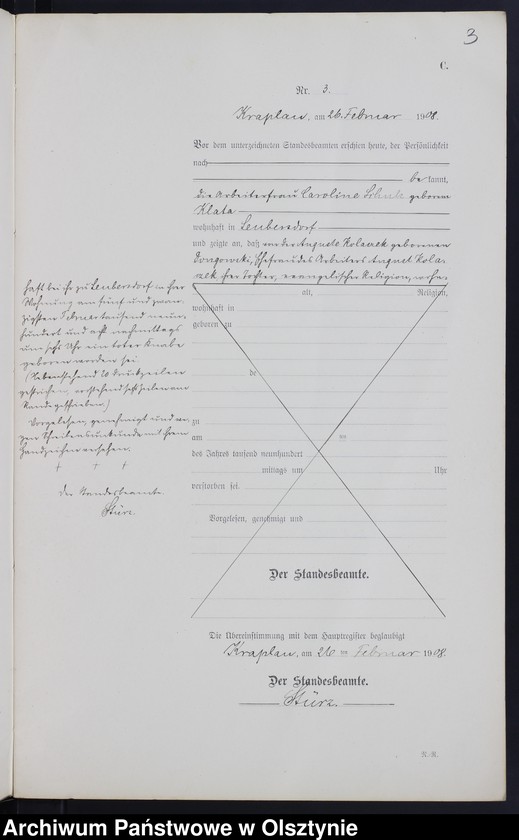 3
C.
Nr. 3.
Kraplau, am 26. Februar 1908.
Vor dem unterzeichneten Standesbeamten erschien heute, der Persönlichkeit
nach
be kannt,
die Arbeiterfrau Caroline geborene
Klata
wohnhaft in Leubersdorf
und zeigte an, daß von der Auguste Kolaczek geborenen
Dongowski, Ehefrau des Arbeiters August Kola-
czek ihrer Tochter, evangelischer Religion, wohn-
haft bei ihr zu Leubersdorf in ihrer
Wohnung am fünf und zwan-
zigsten Februar tausend neun-
hundert und acht nachmittags
um Uhr ein toter Knabe
geboren worden sei
(Nebenstehend 20 Druckzeilen
gestrichen, vorstehend sechs Zeilen am
Rande geschrieben.)
Vorgelesen, genehmigt und we-
gen Schreibensunkunde mit ihrem
Handzeichen versehen.
† † †
Der Standesbeamte
Stürz.
alt, Religion,
wohnhaft in
geboren zu
de
zu
am ten
des Jahres tausend neunhundert
mittags um Uhr
verstorben sei.
Vorgelesen, genehmigt und
Der Standesbeamte.
Die Übereinstimmung mit dem Hauptregister beglaubigt
Kraplau, am 26 ten Februar 1908.
Der Standesbeamte.
Stürz.
Archiwum Państwowe w Olsztynie